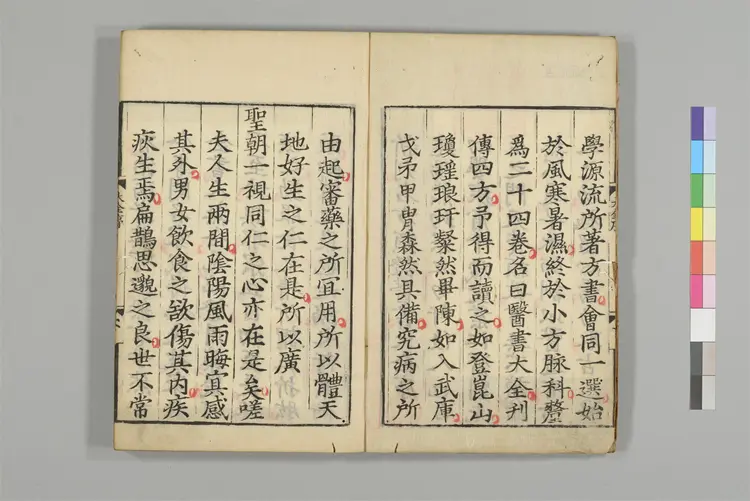 學源流所著方書會同一選始
於風寒暑濕終於小方脉科釐
爲二十四卷名曰醫書大全刋
傳四方予得而讀之如登崑山
瓊瑶琅玕粲然畢陳如入武庫
戈矛甲冑森然具備究病之所
由起審藥之所宜用所以體天
地好生之仁在是所以廣
聖朝一視同仁之心亦在是矣嗟
夫人生兩間陰陽風雨晦冥感
其外男女飲食之欲傷其内疾
疢生焉扁鵲思邈之良世不常